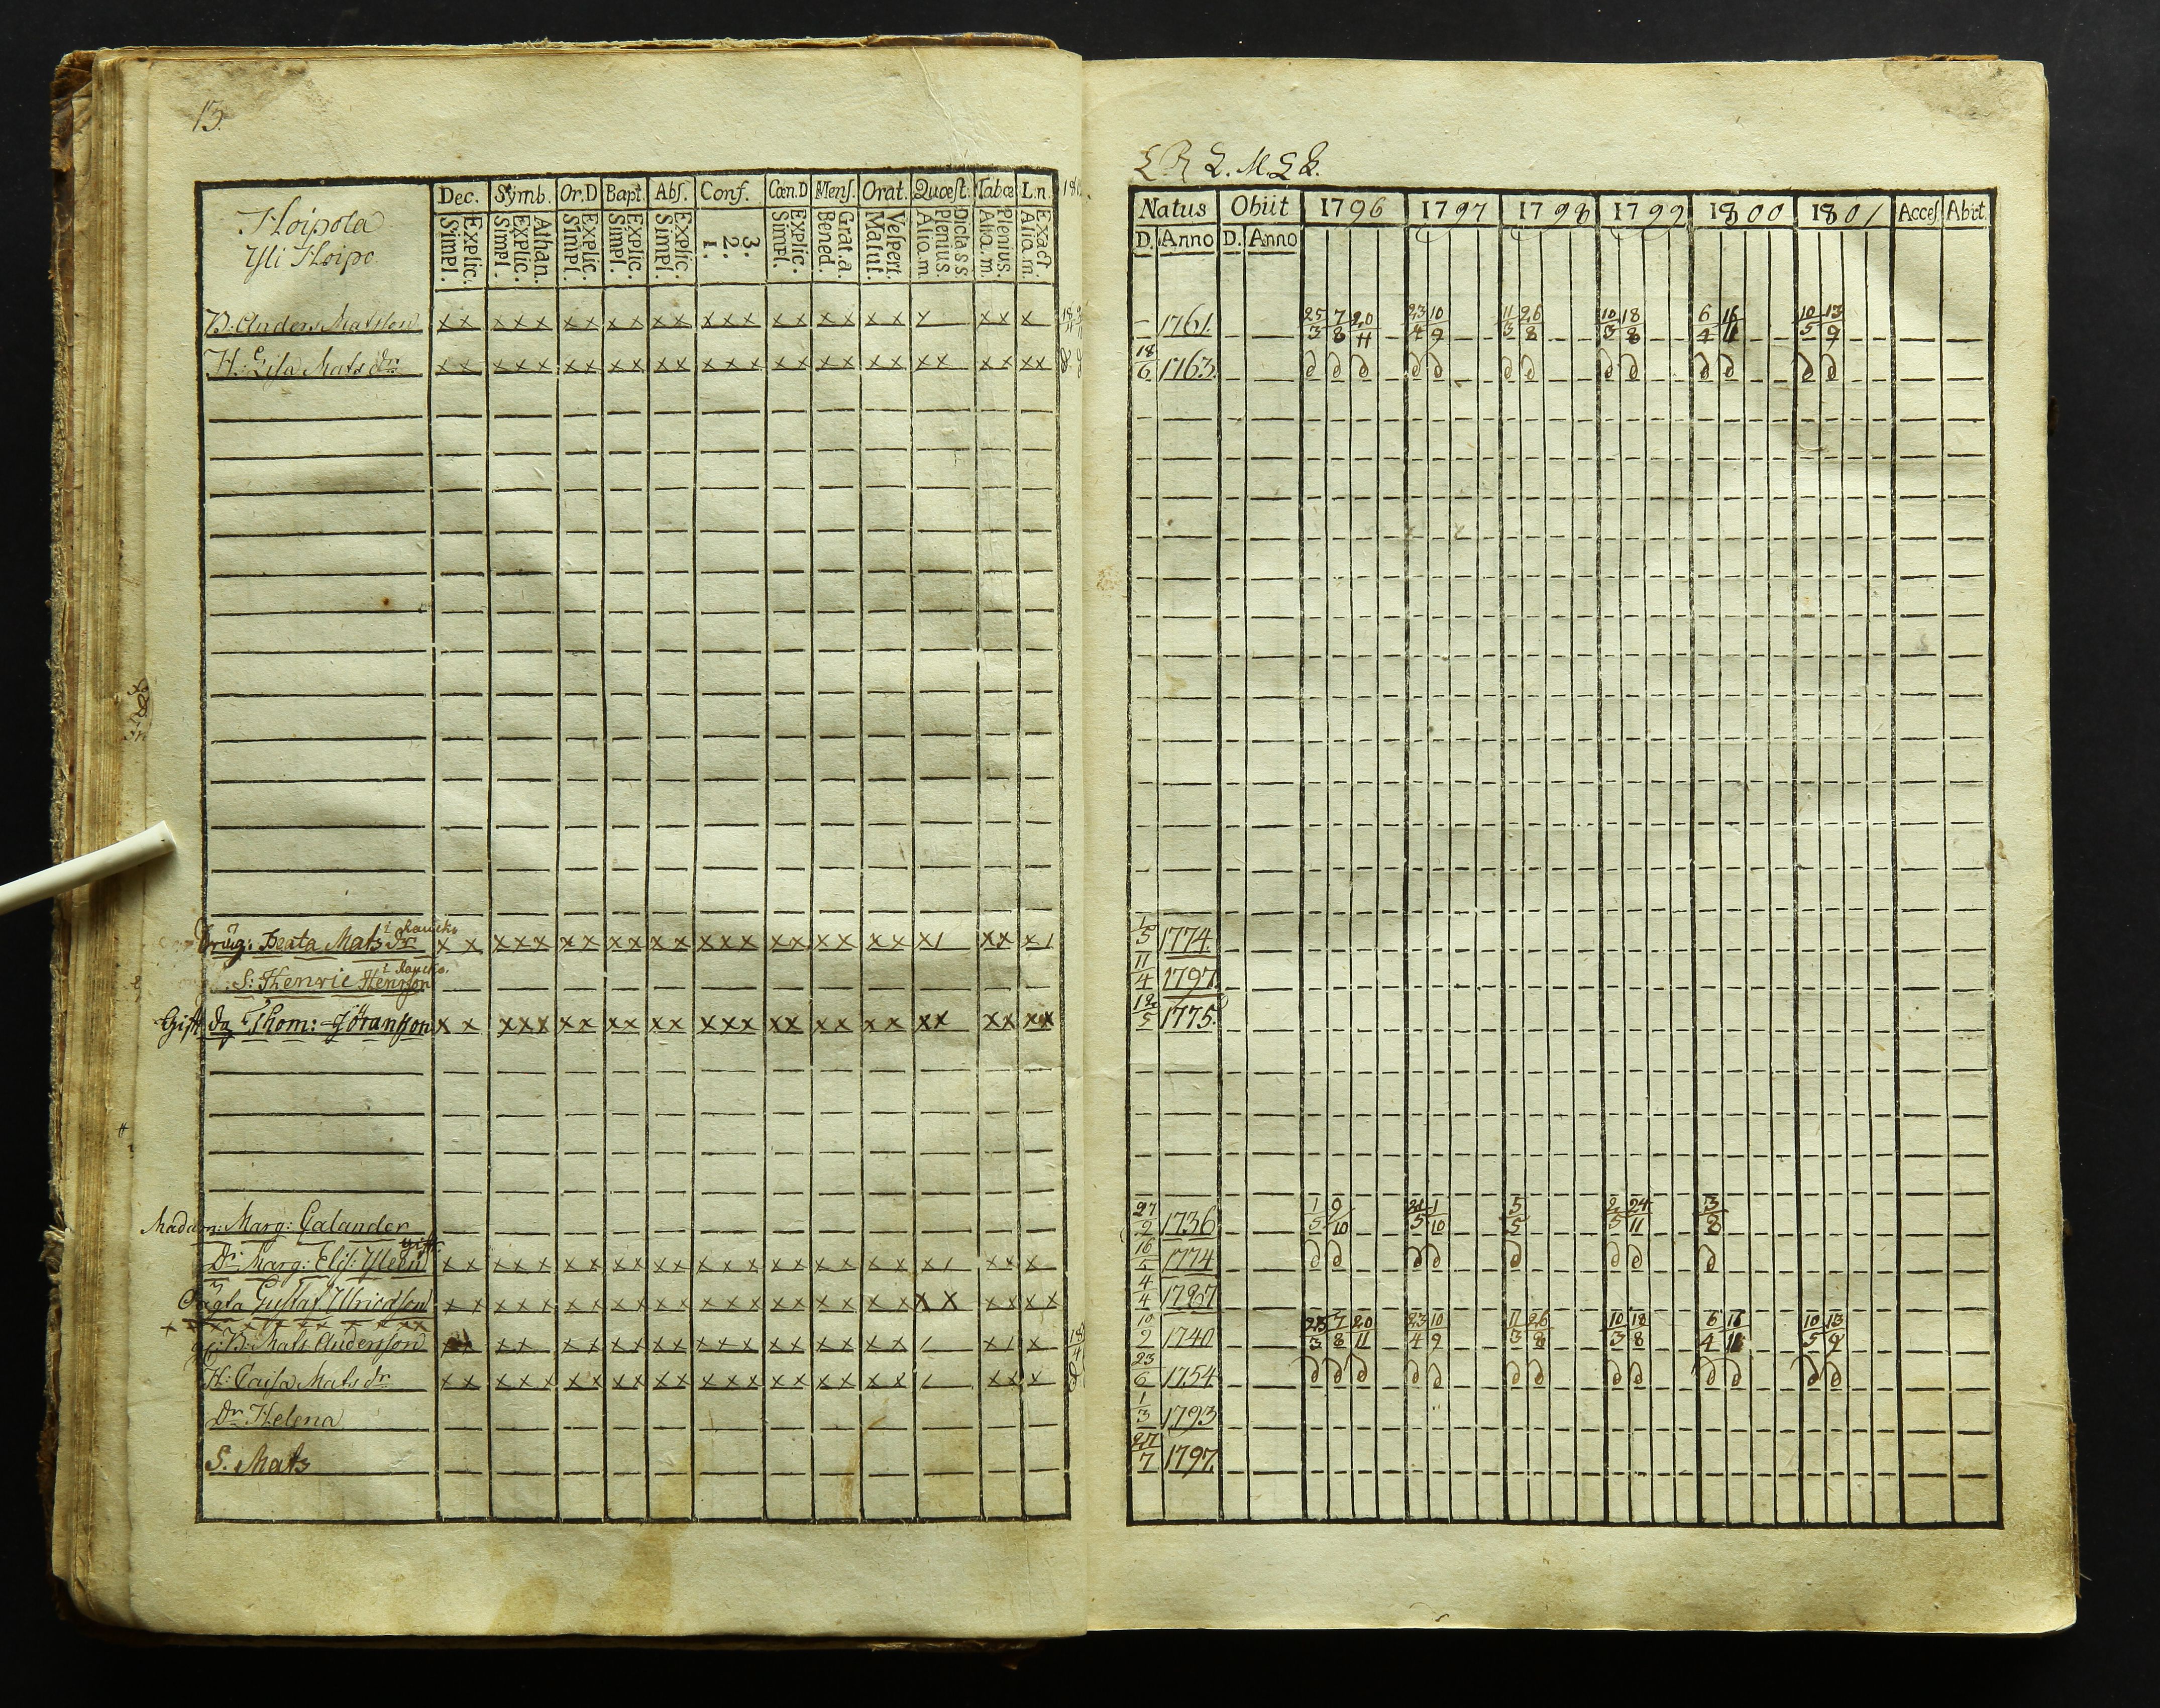 15.
Dec. Symb. Or.D Bapt. Abſ. Conf. Cœn.D Menſ. Orat. Quæſt. Tabœ L.n.
Hoipola
Yli Hoipo
Explic. Simpl. Athan. Explic. Simpl. Explic. Simpl. Explic. Simpl. Explic. Simpl. 3. 2. 1. Explic. Simpl. Grat.a. Bened. Veſpert. Matut. Dicta s s Plenius. Aliq.m Plenius. Aliq.m. Exact. Aliq.m.
B: Anders Matsson x x x x x x x x x x x x x x x x x x x x x x x x
H: Lisa Mats dr x x x x x x x x x x x x x x x x x x x x x x x x x x
Beata Mats dr x x x x x x x x x x x x x x x x x x x x x / x x x /
S: Henric Henrsson
Gift dg Thom: Göransson x x x x x x x x x x x x x x x x x x x x x x x x x x
Madam: Marg: Galander
gift
Dr Marg: Elis: x x x x x x x x x x x x x x x x x x x x x / x x x
Gustaf Ulricsson x x x x x x x x x x x x x x x x x x x x x x x x x x
B: Mats Andersson
H: Caisa Mats dr x x x x x x x x x x x x x x x x x x x x / x x x
Dr Helena
S. Mats
Natus Obiit 1796 1797 1798 1799 1800 1801 Acceſ. Abit.
D. Anno D. Anno
1761. 25/3 7/8 20/11 23/4 10/9 11/3 26/8 10/3 18/8 6/4 16/11 10/5 13/9
18/6 1763. d d d d d d d d d d d d d
1/5 1774.
11/4 1797.
12/5 1775.
27/2 1736 1/5 9/10 21/5 1/10 5/5 2/5 24/11 3/8
16/5 1774 d d d d d d d d
4/4 1787
10/2 1740 25/3 7/8 20/11 23/4 10/9 11/3 26/8 10/3 18/8 6/4 16/11 10/5 13/9
23/6 1754 d d d d d d d d d d d d d
1/3 1793
27/7 1797.